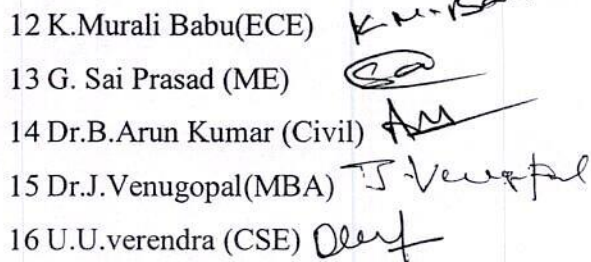 12 K.Murali Babu(ECE) K.M.Ba
13 G. Sai Prasad (ME)
14 Dr.B.Arun Kumar (Civil)
15 Dr.J.Venugopal(MBA) J.Venugopal
16 U.U.verendra (CSE)